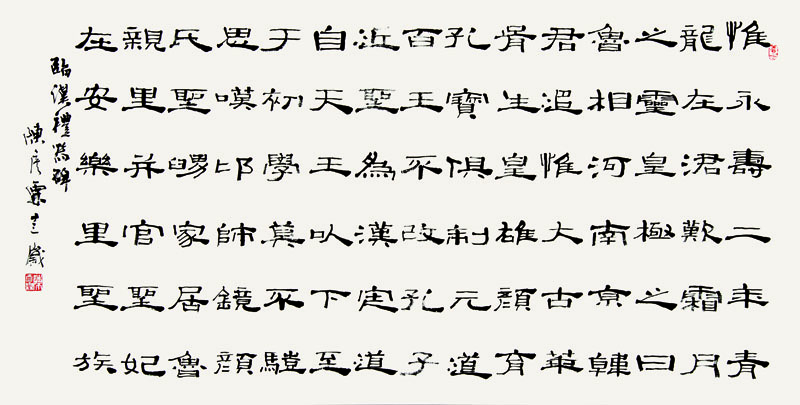 惟永壽二年青
龍在涒歎霜月
之靈皇極之日
魯相河南京韓
君追惟大古華
胥生皇雄顏育
孔寶俱制元道
百王不改孔子
近聖為漢定道
自天王以下至
于初學莫不驥
思嘆卬師鏡顏
氏聖舅家居魯
親里并官聖妃
在安樂里聖族
臨漢禮器碑
陳 霖 歲